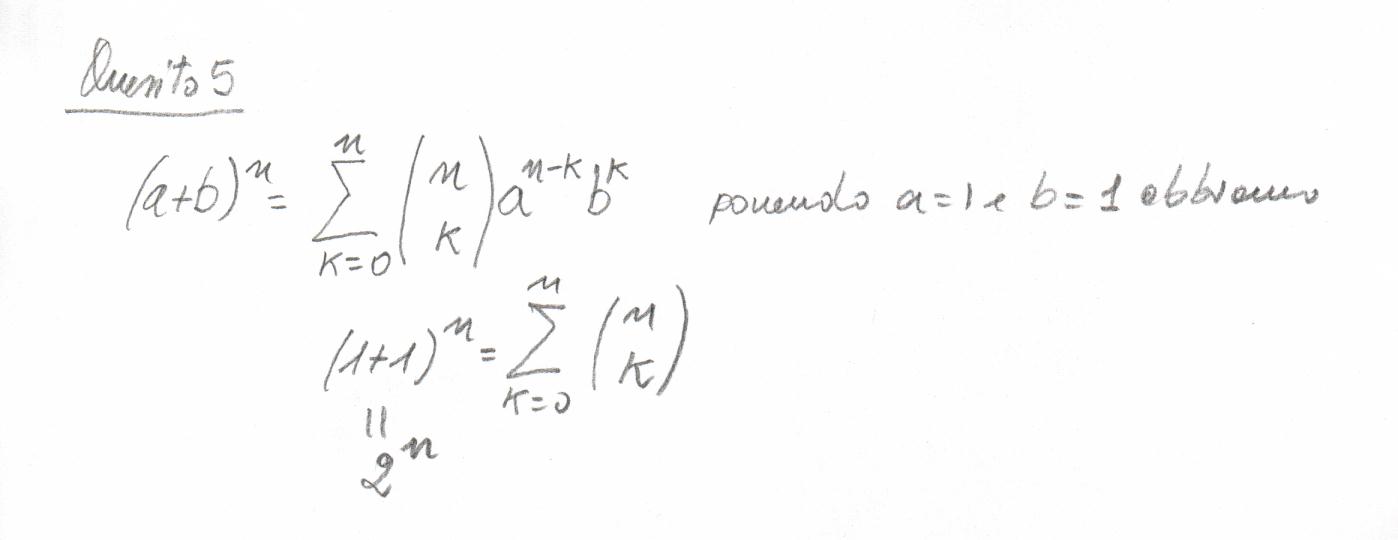 Quesito 5
(a+b)^n = \sum_{k=0}^{n} \binom{n}{k} a^{n-k} b^k ponendo a=1 e b=1 abbiamo
(1+1)^n = \sum_{k=0}^{n} \binom{n}{k}
||
2^n